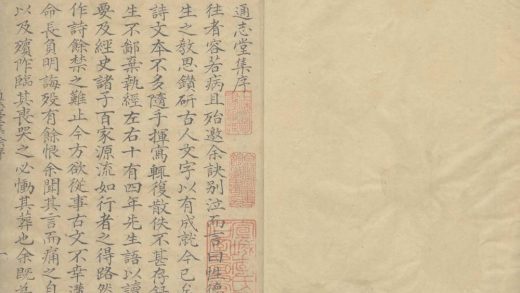 通志堂集序
往者容若病且殆邀余訣別泣而言曰性德
生之教思鑽研古人文字以有成就今已矣
詩文本不多隨手揮寫輒復散佚不甚存錄
生不鄙棄執經左右十有四年先生語以讀
要及經史諸子百家源流如行者之得路然
作詩餘禁之難止今方欲從事古文不幸遘
命長負明誨歿有餘恨余聞其言而痛之自
以及殯臨其喪哭之必慟其葬也余既為